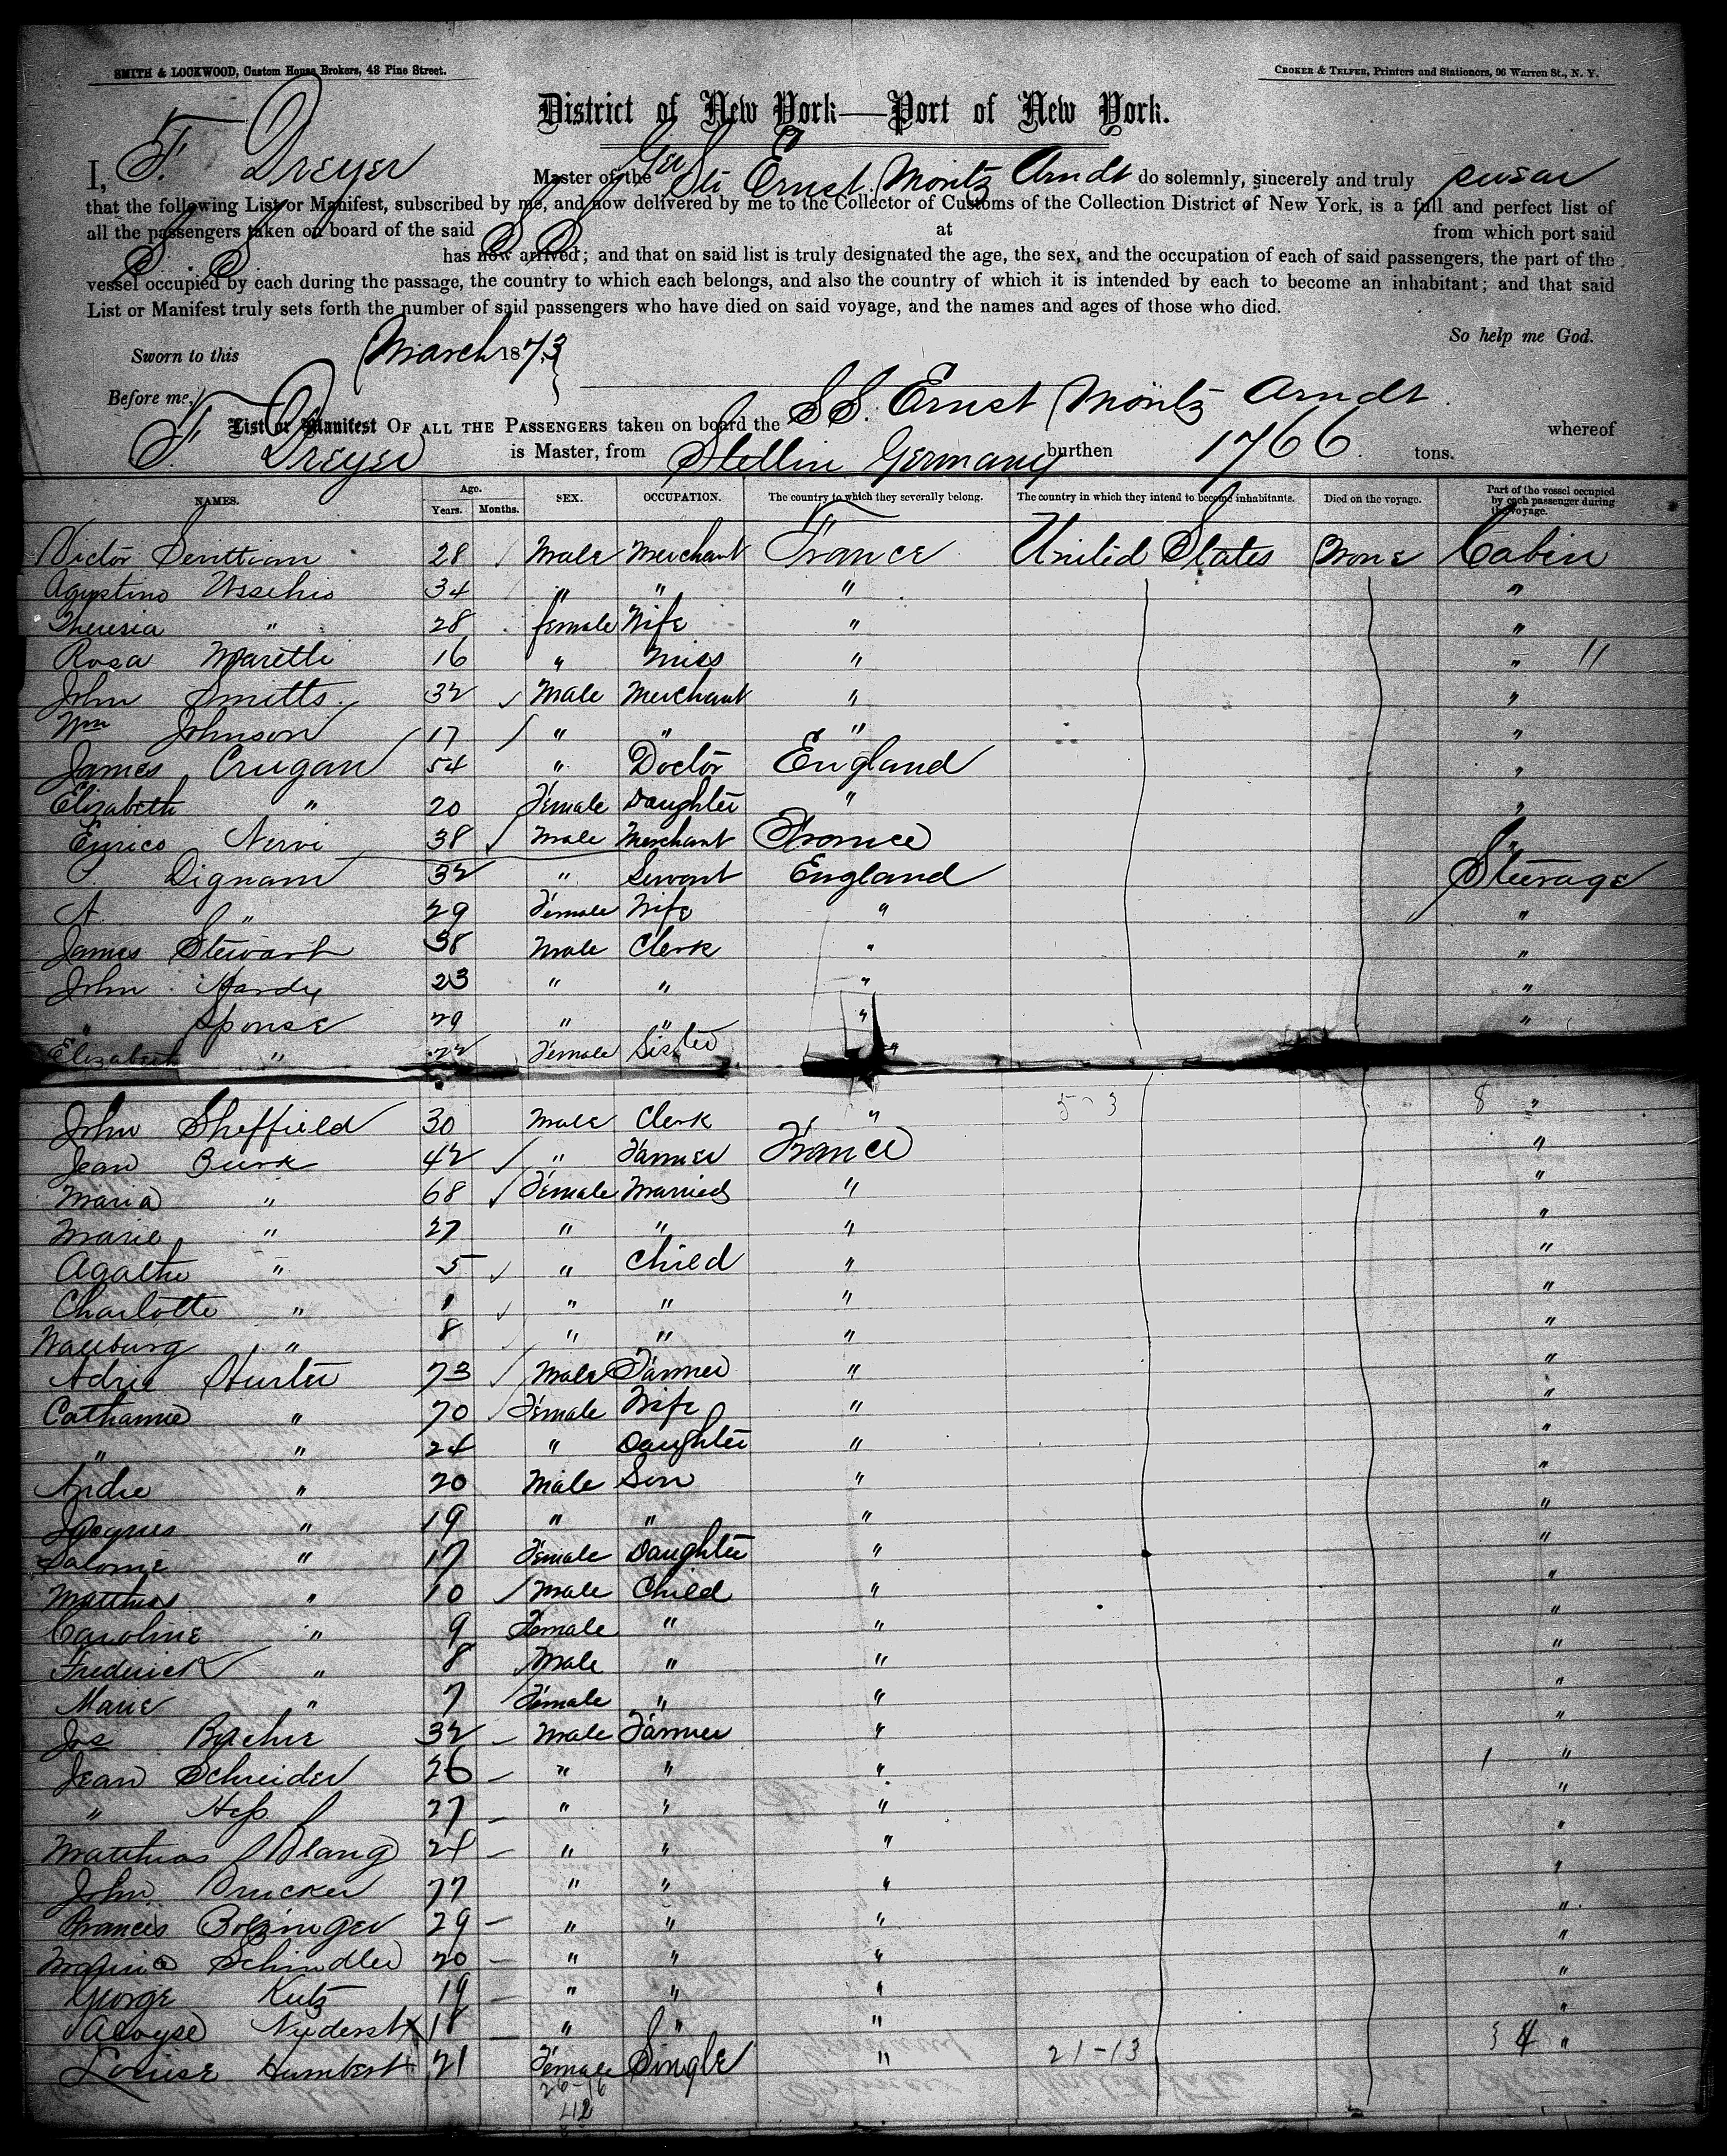 SMITH & LOCKWOOD, Custom House Brokers, 48 Pine Street.
CROKER & TELFER, Printers and Stationers, 96 Warren St., N. Y.
District of New York—Port of New York.
I, F. Dreyer Master of the Ger Str Ernst Moritz Arndt do solemnly, sincerely and truly swear
that the following List or Manifest, subscribed by me, and now delivered by me to the Collector of Customs of the Collection District of New York, is a full and perfect list of
all the passengers taken on board of the said S S at from which port said
S S has now arrived; and that on said list is truly designated the age, the sex, and the occupation of each of said passengers, the part of the
vessel occupied by each during the passage, the country to which each belongs, and also the country of which it is intended by each to become an inhabitant; and that said
List or Manifest truly sets forth the number of said passengers who have died on said voyage, and the names and ages of those who died.
So help me God.
Sworn to this March 1873
Before me,
List or Manifest OF ALL THE PASSENGERS taken on board the SS. Ernst Moritz Arndt whereof
F. Dreyer is Master, from Stettin Germany burthen 1766. tons.
NAMES. Age. Years. Months. SEX. OCCUPATION. The country to which they severally belong. The country in which they intend to become inhabitants. Died on the voyage. Part of the vessel occupied by each passenger during the voyage.
Victor 28 Male Merchant France United States None Cabin
Agustino 34 " " " "
Theresia " 28 female Wife " "
Rosa Maretti 16 " Miss " " 11
John Smitts. 32 Male Merchant " "
Wm Johnson 17 " " " "
James Crugan 54 " Doctor England "
Elizabeth " 20 Female Daughter " "
Enrico Nervi 38 Male Merchant France "
Dignam 32 " Servant England Steerage
A. " 29 Female Wife " "
James Stewart 38 Male Clerk " "
John Hardy 23 " " " "
" Sponse 29 " " " "
Elizabeth " 22 Female Sister "
John Sheffield 30 Male Clerk " 8 "
Jean Burk 42 " Farmer France "
Maria " 68 Female Married " "
Marie " 27 " " " "
Agathe " 5 " Child " "
Charlotte " 1 " " " "
Walburg " 8 " " " "
Adrie Hurter 73 Male Farmer " "
Catharine " 70 Female Wife " "
" " 24 " Daughter " "
Andre " 20 Male Son " "
Jacques " 19 " " " "
Salome " 17 Female Daughter " "
Matthias " 10 Male Child " "
Caroline " 9 Female " " "
Frederick " 8 Male " " "
Marie " 7 Female " " "
Jos 32 Male Farmer " "
Jean Schreider 26 " " " 1 "
" Hess 27 " " " "
Matthias Blang 24 " " " "
John Brucker 77 " " " "
Francis Bolzinger 29 " " " "
Schindler 20 " " " "
George Kutz 19 " " " "
Aloyse 18 " " " "
Louise Humbert 21 Female Single " 21-13 "
26-16
42